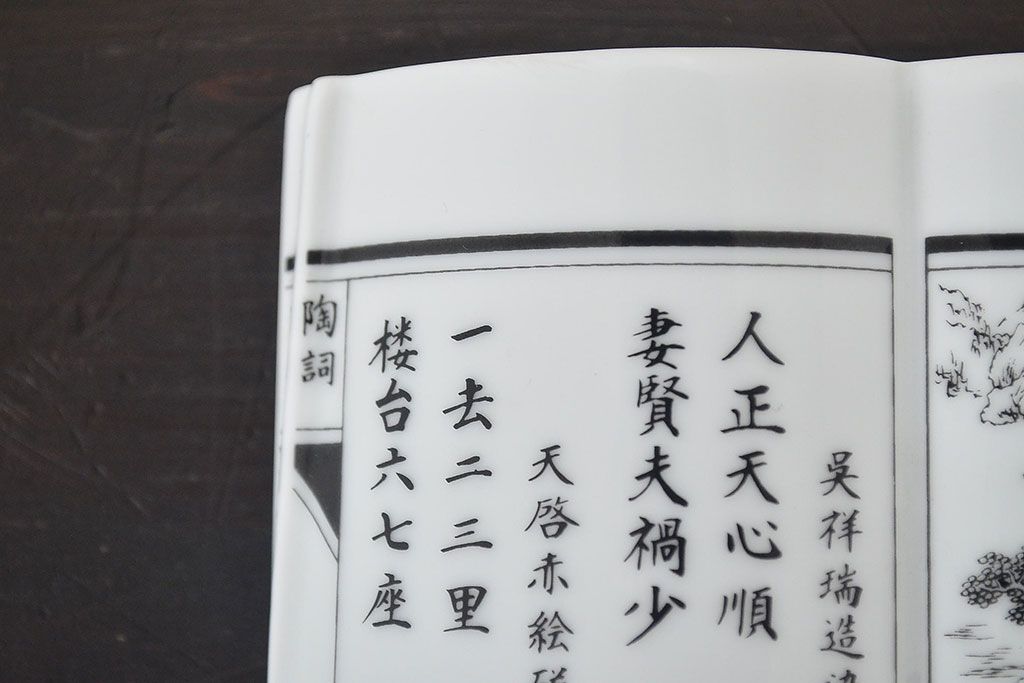 吳祥瑞造
人正天心順
妻賢夫禍少
天啓赤絵
一去二三里
楼台六七座
陶詞